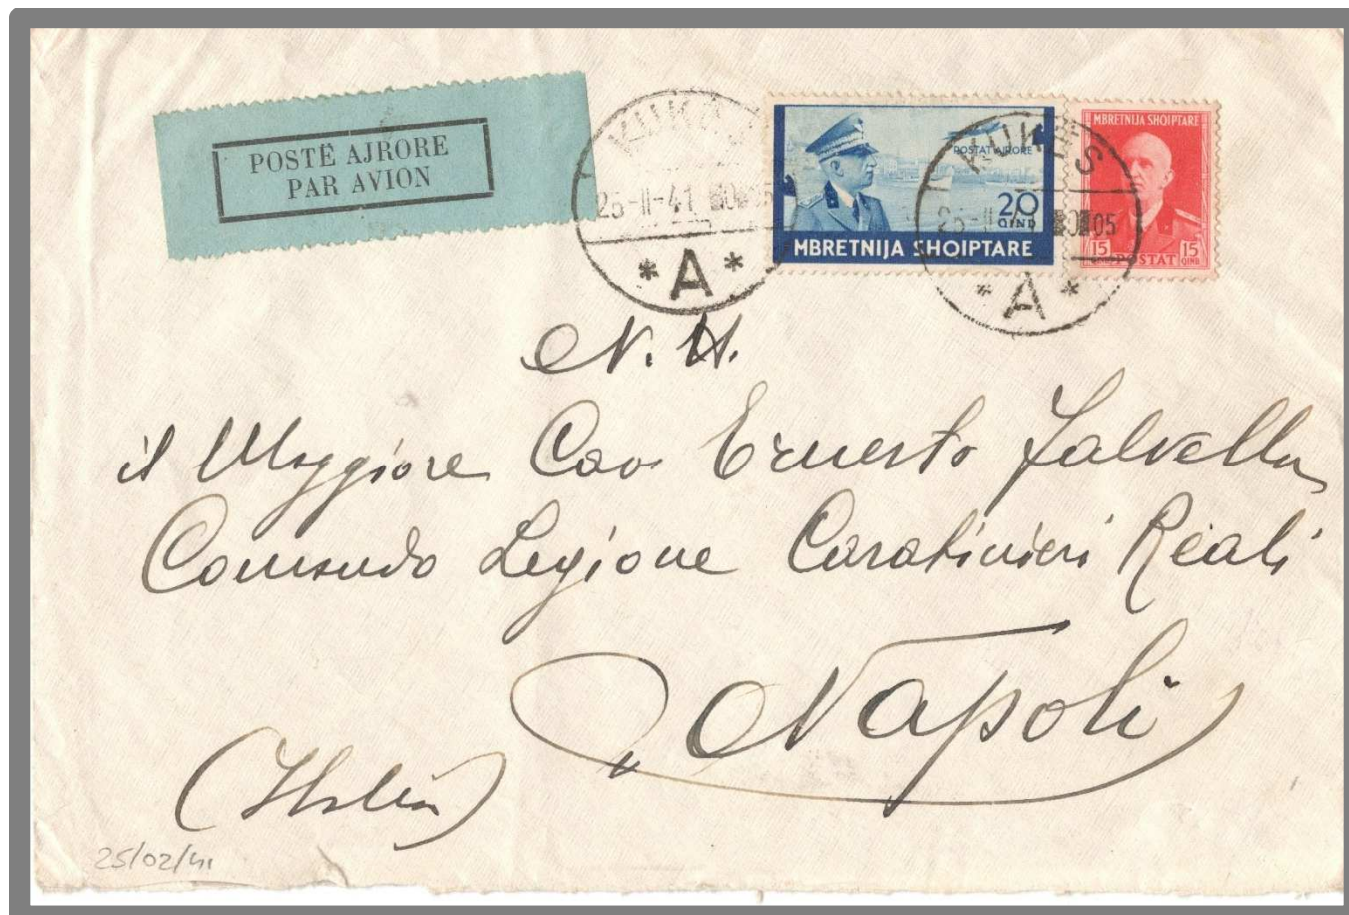 POSTË AJRORE
PAR AVION
KUKËS
25-II-41
05
* A *
POSTAT AJRORE
20
QIND
MBRETNIJA SHQIPTARE
MBRETNIJA SHQIPTARE
15
15
QIND
POSTAT
KUKËS
25-II
05
* A *
N. H.
il Maggiore Cav. Ernesto
Comando Legione Carabinieri Reali
Napoli
(Italia)
25/02/41